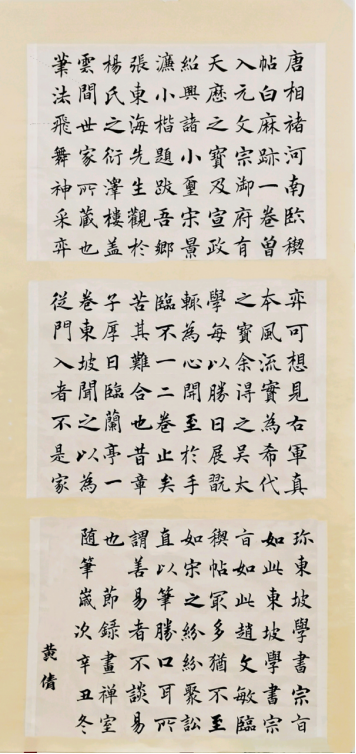 唐相褚河南臨稧
帖白麻跡一卷曾
入元文宗御府有
天曆之寶及宣政
紹興諸小璽宋景
濂小楷題跋吾鄉
張東海先生觀於
楊氏之衍澤樓蓋
雲間世家所藏也
筆法飛舞神采弈
弈可想見右軍真
本風流實為希代
之寶余得之吴太
學每以勝日展翫
輒為心開至於手
臨不一二卷止矣
苦其難合也昔章
子厚日臨蘭亭一
卷東坡聞之以為
從門入者不是家
珎東坡學書宗旨
如此東坡學書宗
旨如此趙文敏臨
稧帖冣多猶不至
如宋之紛紛聚訟
直以筆勝口耳所
謂善易者不談易
也 節録畫禪室
随筆 歲次辛丑冬
黄倩